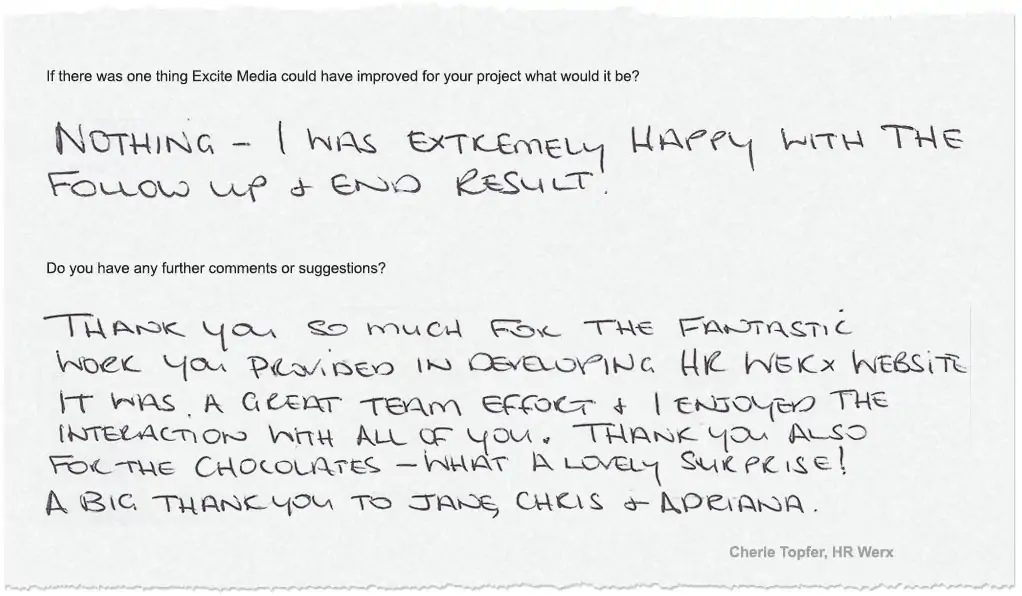 If there was one thing Excite Media could have improved for your project what would it be?
NOTHING – I WAS EXTREMELY HAPPY WITH THE
FOLLOW UP & END RESULT!
Do you have any further comments or suggestions?
THANK YOU SO MUCH FOR THE FANTASTIC
WORK YOU PROVIDED IN DEVELOPING HR WERX WEBSITE
IT WAS A GREAT TEAM EFFORT & I ENJOYED THE
INTERACTION WITH ALL OF YOU. THANK YOU ALSO
FOR THE CHOCOLATES – WHAT A LOVELY SURPRISE!
A BIG THANK YOU TO JANE, CHRIS & ADRIANA.
Cherie Topfer, HR Werx